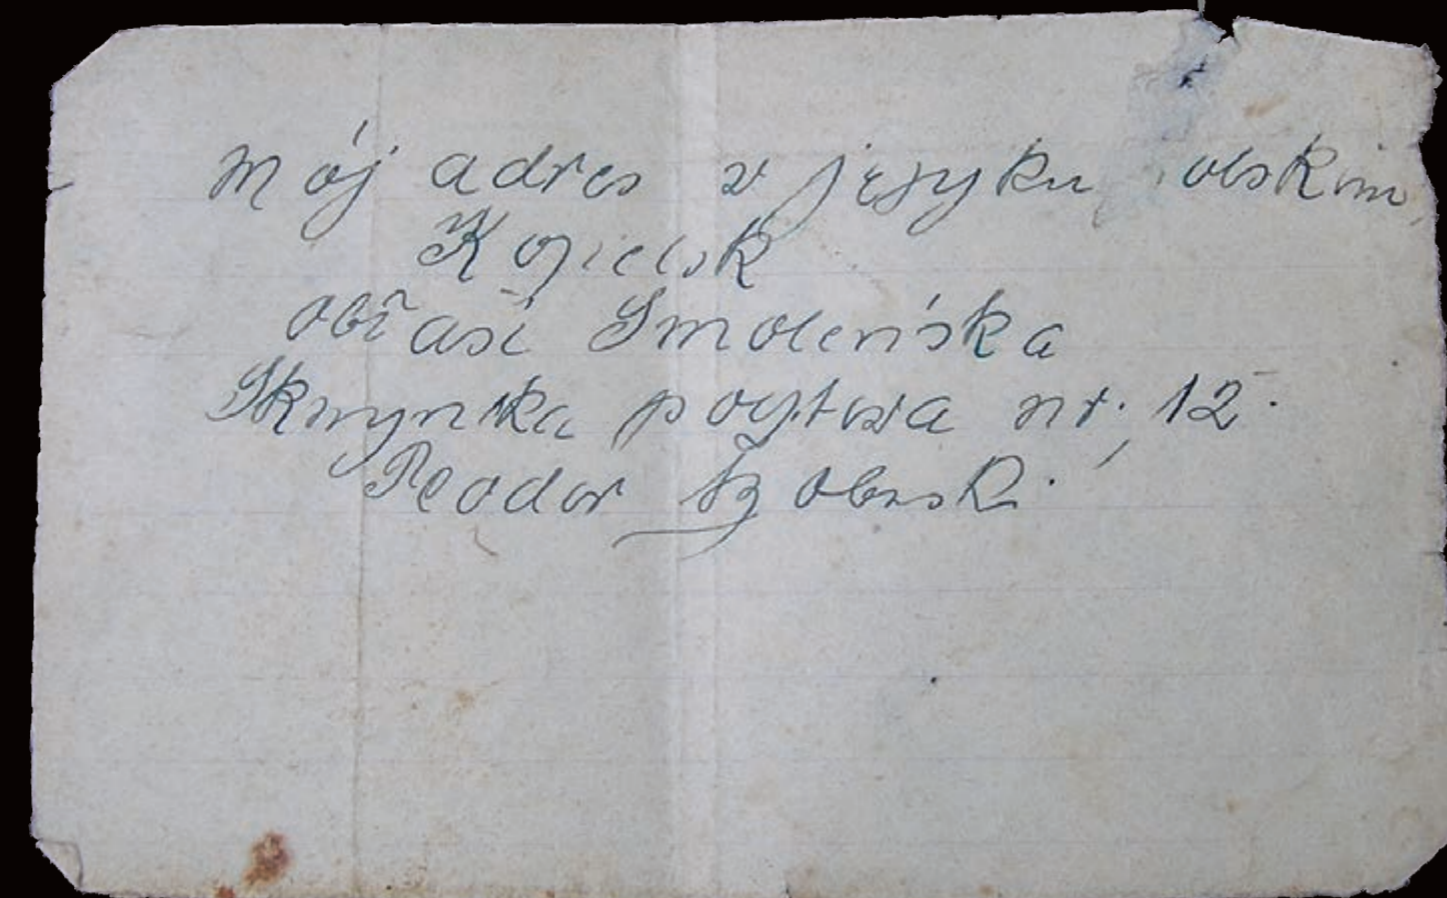 Mój adres w języku olskim,
Kozielsk
obłaść Smoleńska
Skrzynka pocztowa nr. 12.
Teodor